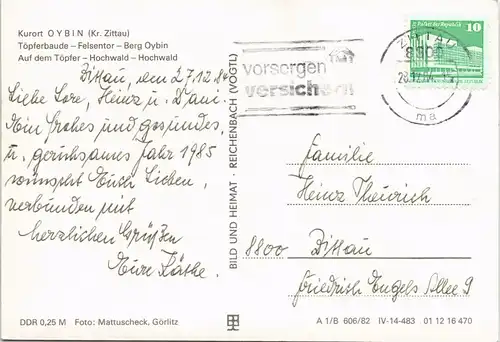 Kurort OYBIN (Kr. Zittau)
Töpferbaude – Felsentor – Berg Oybin
Auf dem Töpfer – Hochwald – Hochwald
Zittau, den 27.12.84
Liebe Lore, Heinz u. Dani.
Ein frohes und gesundes,
u. geruhsames Jahr 1985
wünscht Euch Lieben,
verbunden mit
herzlichen Grüßen
Eure Käthe.
DDR 0,25 M Foto: Mattuscheck, Görlitz
BILD UND HEIMAT · REICHENBACH (VOGTL)
vorsorgen
versichern!
ZITTAU
8800
ma
10
Familie
Heinz Theurich
8800 Zittau
Friedrich Engels Allee 9
A 1/B 606/82 IV-14-483 01 12 16 470